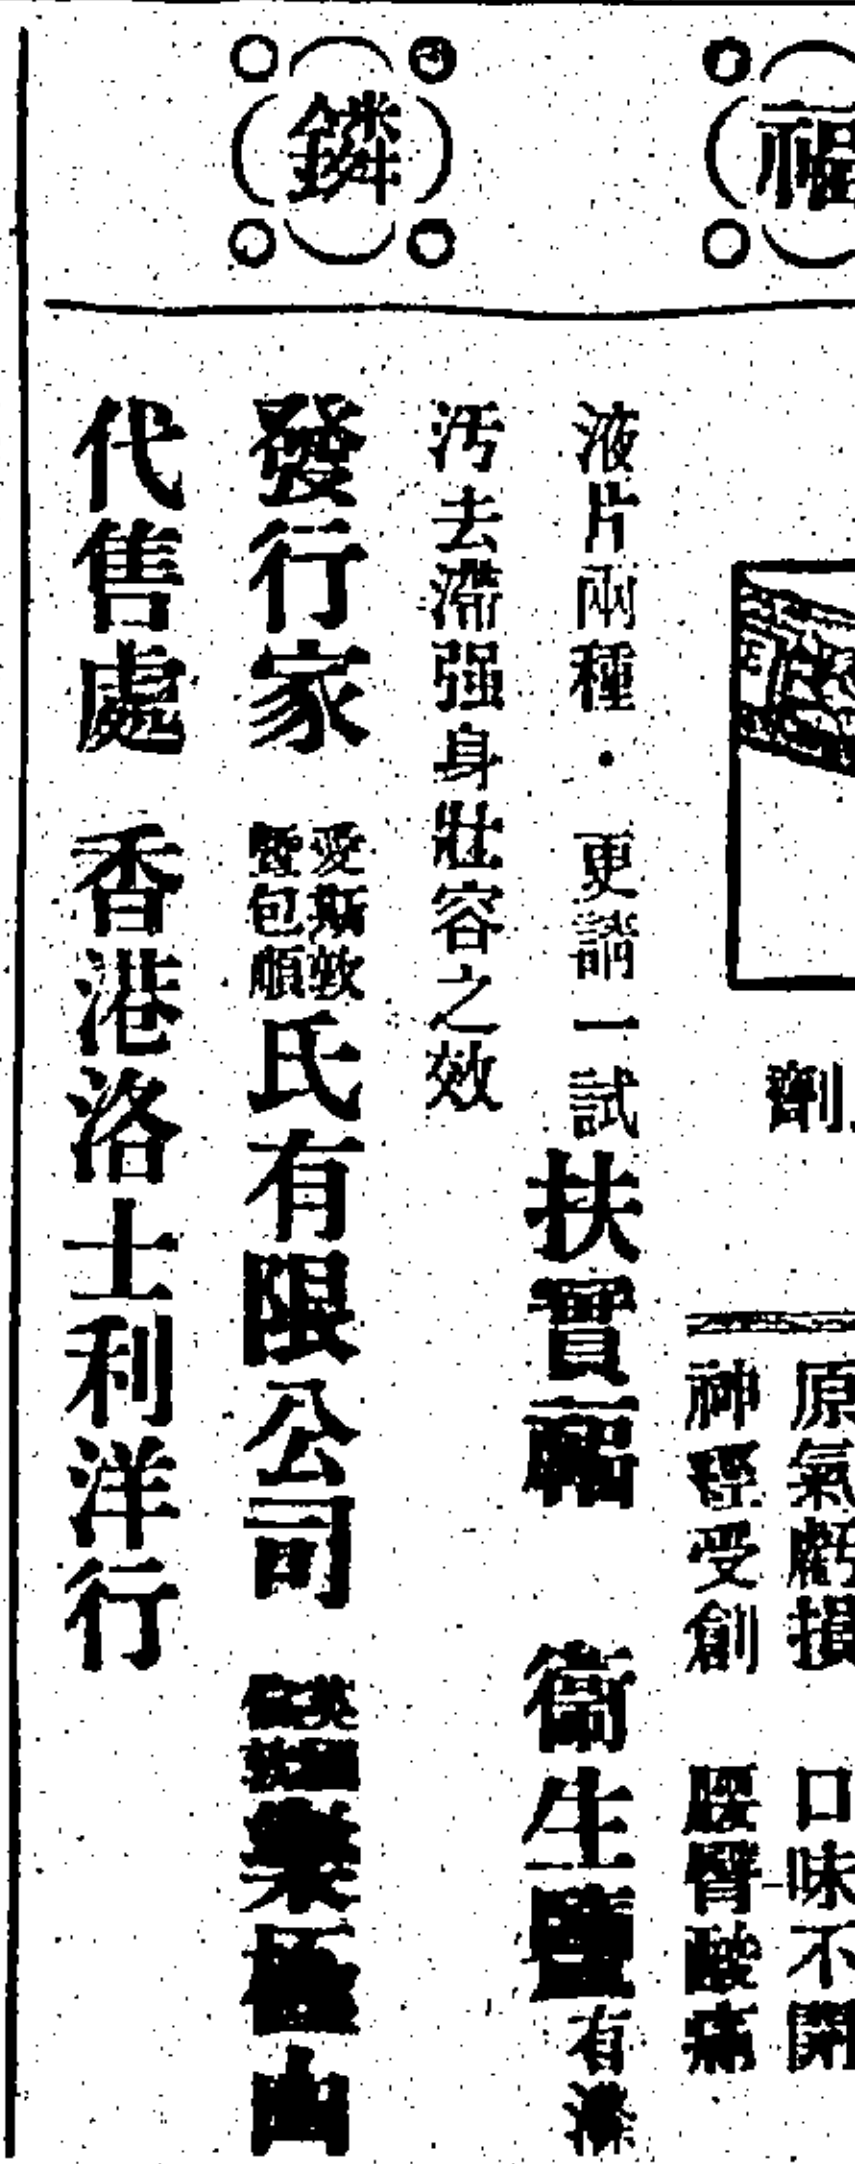 福鏻
劑
原氣虧損 口味不開
神經受創 腰臂酸痛
液片兩種・更請一試扶實 衞生鹽有滌
污去滯强身壯容之效
發行家 愛斯敦暨包順氏有限公司 英國倫敦
代售處 香港洛士利洋行